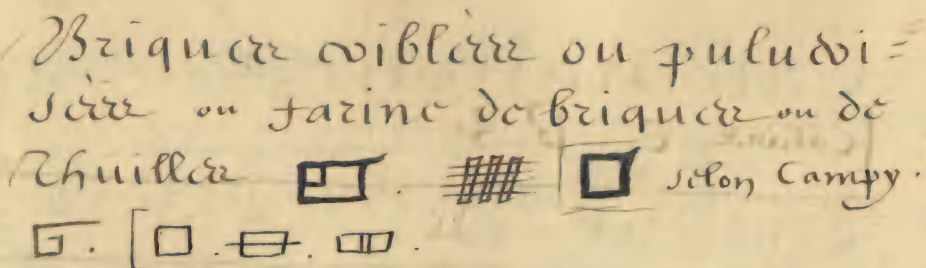 Briques criblées ou pulueri=
sées ou farine de briques ou de
Thuilles selon Campy.